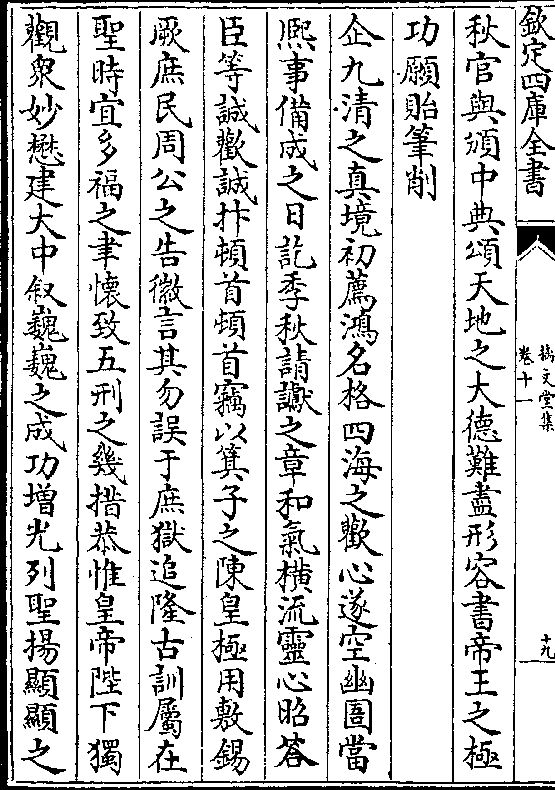 欽定四庫全書
摛文堂集
卷十一
十九
秋官與頒中典頌天地之大德難盡形容書帝王之極
功願貽筆削
企九清之真境初薦鴻名格四海之歡心遂空幽圄當
熙事備成之日訖季秋請讞之章和氣橫流靈心昭答
臣等誠歡誠抃頓首頓首竊以箕子之陳皇極用敷錫
厥庶民周公之告徽言其勿誤于庶獄追隆古訓屬在
聖時宜多福之聿懷致五刑之幾措恭惟皇帝陛下獨
觀衆妙懋建大中叙巍巍之成功增光列聖揚顯顯之